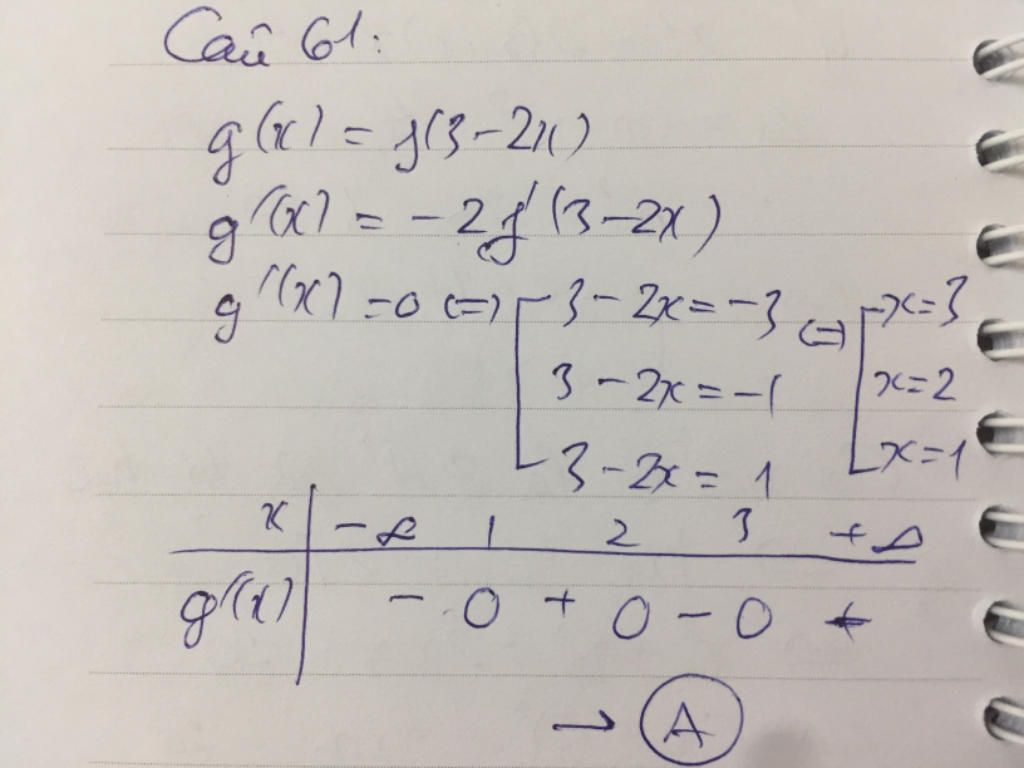 Câu 61:
g(x) = f(3-2x)
g'(x) = -2f'(3-2x)
g'(x) = 0 <=> [ 3-2x = -3 <=> [ x=3
3-2x = -1 x=2
3-2x = 1 x=1
x | -∞ 1 2 3 +∞
g'(x) | - 0 + 0 - 0 +
→ A